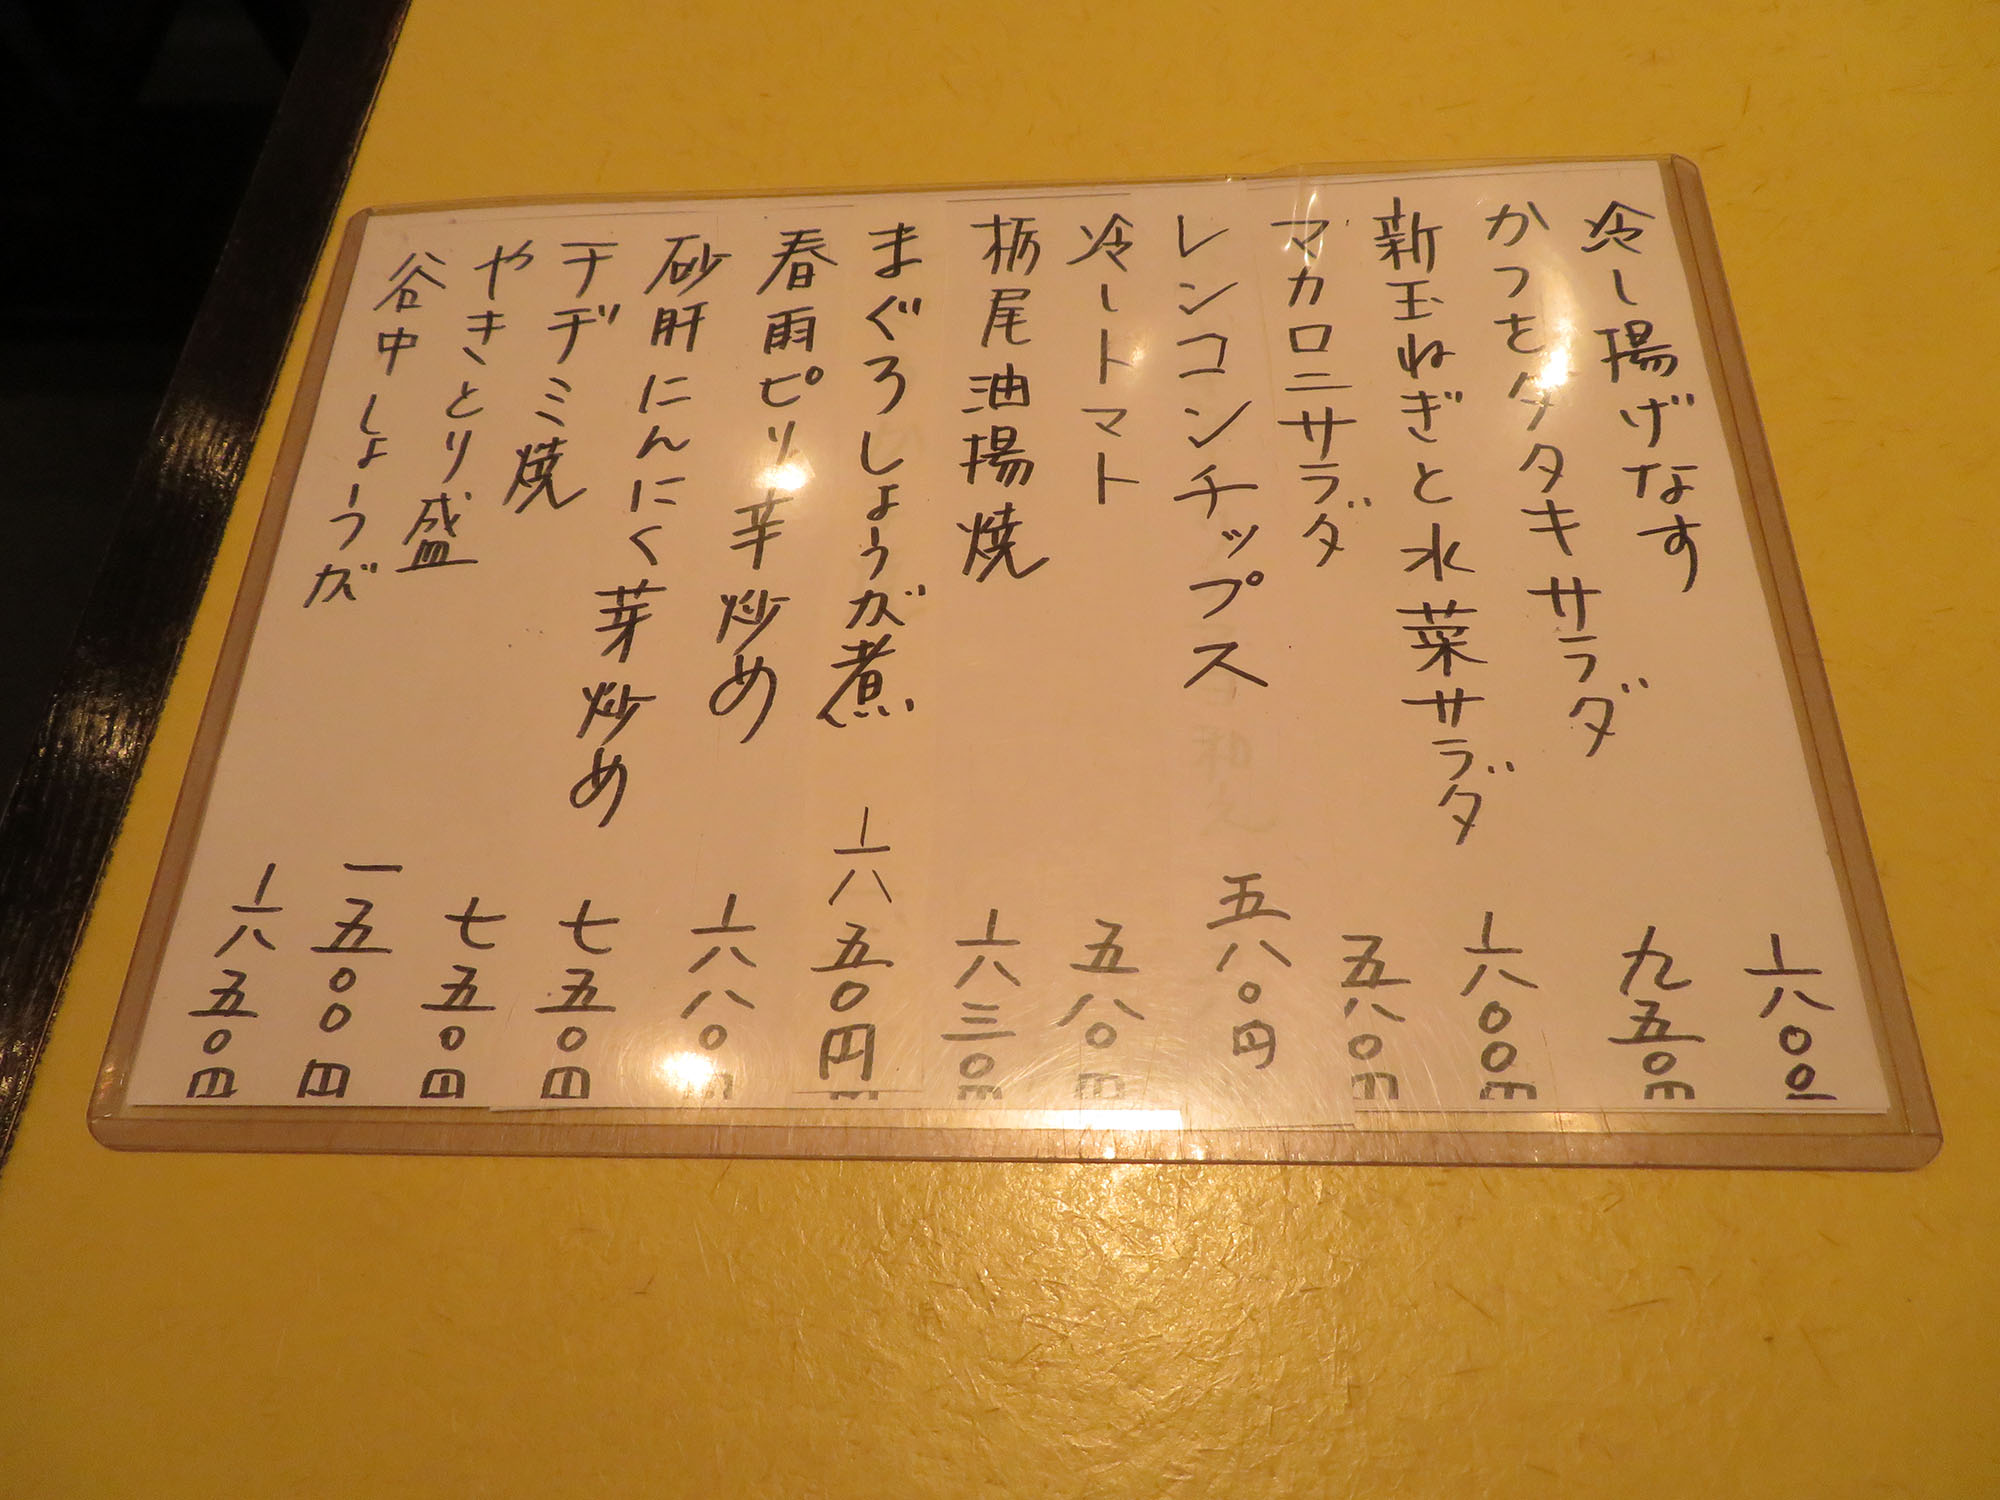 冷し揚げなす 六〇〇円
かつをタタキサラダ 九五〇円
新玉ねぎと水菜サラダ 六〇〇円
マカロニサラダ 五八〇円
レンコンチップス 五八〇円
冷しトマト 五八〇円
栃尾油揚焼 六三〇円
まぐろしょうが煮 六五〇円
春雨ピリ辛炒め 六八〇円
砂肝にんにく芽炒め 七五〇円
チヂミ焼 七五〇円
やきとり盛 一五〇〇円
谷中しょうが 六五〇円